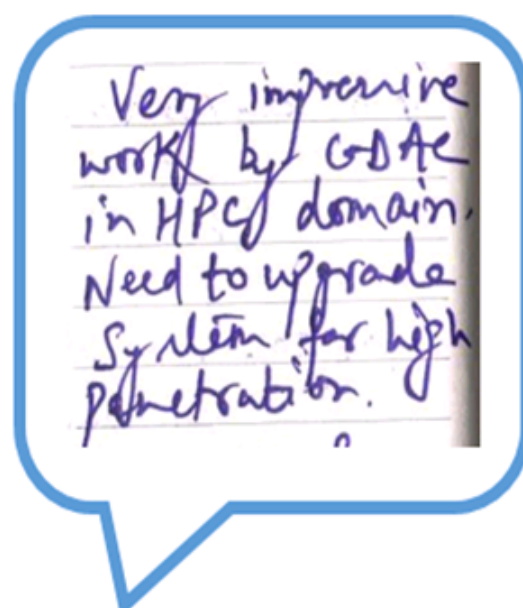 Very impressive
work by CDAC
in HPC domain.
Need to upgrade
System for high
penetration.